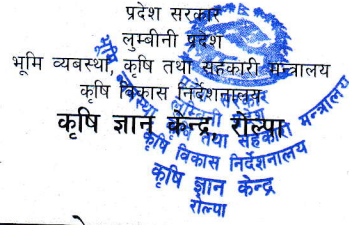 प्रदेश सरकार
लुम्बिनी प्रदेश
भूमि व्यबस्था, कृषि तथा सहकारी मन्त्रालय
कृषि विकास निर्देशनालय
कृषि ज्ञान केन्द्र, रोल्पा
प्रदेश सरकार
लुम्बिनी प्रदेश
भूमि व्यवस्था, कृषि तथा सहकारी मन्त्रालय
कृषि विकास निर्देशनालय
कृषि ज्ञान केन्द्र
रोल्पा